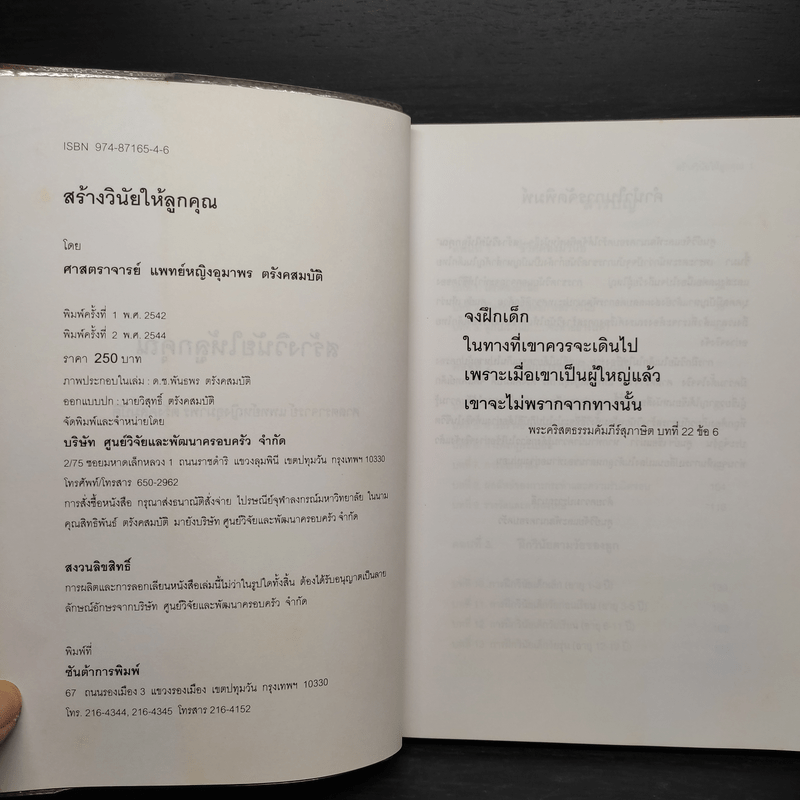 ISBN 974-87165-4-6
สร้างวินัยให้ลูกคุณ
โดย
ศาสตราจารย์ แพทย์หญิงอุมาพร ตรังคสมบัติ
พิมพ์ครั้งที่ 1 พ.ศ. 2542
พิมพ์ครั้งที่ 2 พ.ศ. 2544
ราคา 250 บาท
ภาพประกอบในเล่ม : ด.ช.พันธพร ตรังคสมบัติ
ออกแบบปก : นายวิสุทธิ์ ตรังคสมบัติ
จัดพิมพ์และจำหน่ายโดย
บริษัท ศูนย์วิจัยและพัฒนาครอบครัว จำกัด
2/75 ซอยมหาดเล็กหลวง 1 ถนนราชดำริ แขวงลุมพินี เขตปทุมวัน กรุงเทพฯ 10330
โทรศัพท์/โทรสาร 650-2962
การสั่งซื้อหนังสือ กรุณาส่งธนาณัติสั่งจ่าย ไปรษณีย์จุฬาลงกรณ์มหาวิทยาลัย ในนาม
คุณสิทธิพันธ์ ตรังคสมบัติ มายังบริษัท ศูนย์วิจัยและพัฒนาครอบครัว จำกัด
สงวนลิขสิทธิ์
การผลิตและการลอกเลียนหนังสือเล่มนี้ไม่ว่าในรูปใดทั้งสิ้น ต้องได้รับอนุญาตเป็นลาย
ลักษณ์อักษรจากบริษัท ศูนย์วิจัยและพัฒนาครอบครัว จำกัด
พิมพ์ที่
ซันต้าการพิมพ์
67 ถนนรองเมือง 3 แขวงรองเมือง เขตปทุมวัน กรุงเทพฯ 10330
โทร. 216-4344, 216-4345 โทรสาร 216-4152
จงฝึกเด็ก
ในทางที่เขาควรจะเดินไป
เพราะเมื่อเขาเป็นผู้ใหญ่แล้ว
เขาจะไม่พรากจากทางนั้น
พระคริสตธรรมคัมภีร์สุภาษิต บทที่ 22 ข้อ 6